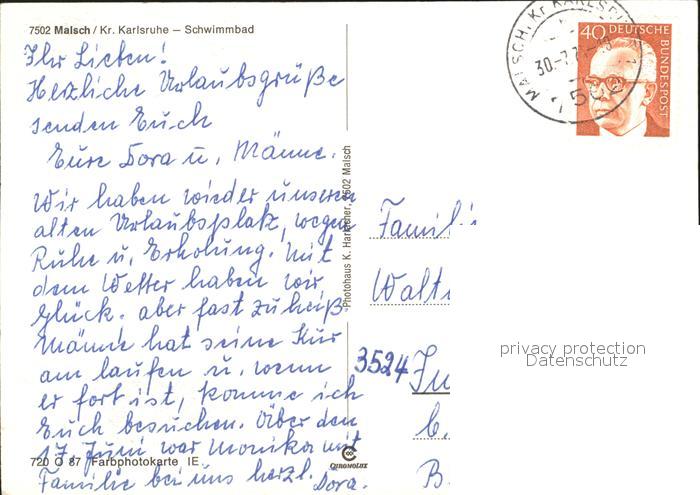 7502 Malsch / Kr. Karlsruhe – Schwimmbad
Ihr Lieben!
Herzliche Urlaubsgrüße
senden Euch
Eure Dora u. Männe.
Wir haben wieder unseren
alten Urlaubsplatz, wegen
Ruhe u. Erholung. Mit
dem Wetter haben wir
Glück. aber fast zu heiß
Männe hat seine Kur
am laufen u. wenn
er fort ist, komme ich
Euch besuchen. Über den
17. Juni war Monika mit
Familie bei uns herzl. Dora.
720 O 87 Farbphotokarte IE
CHROMOLUX
Photohaus K. 7502 Malsch
MALSCH, Kr KARLSRUHE
30.-7.7
7502
40 DEUTSCHE
BUNDESPOST
Famili
Walt
3524
B.
privacy protection
Datenschutz